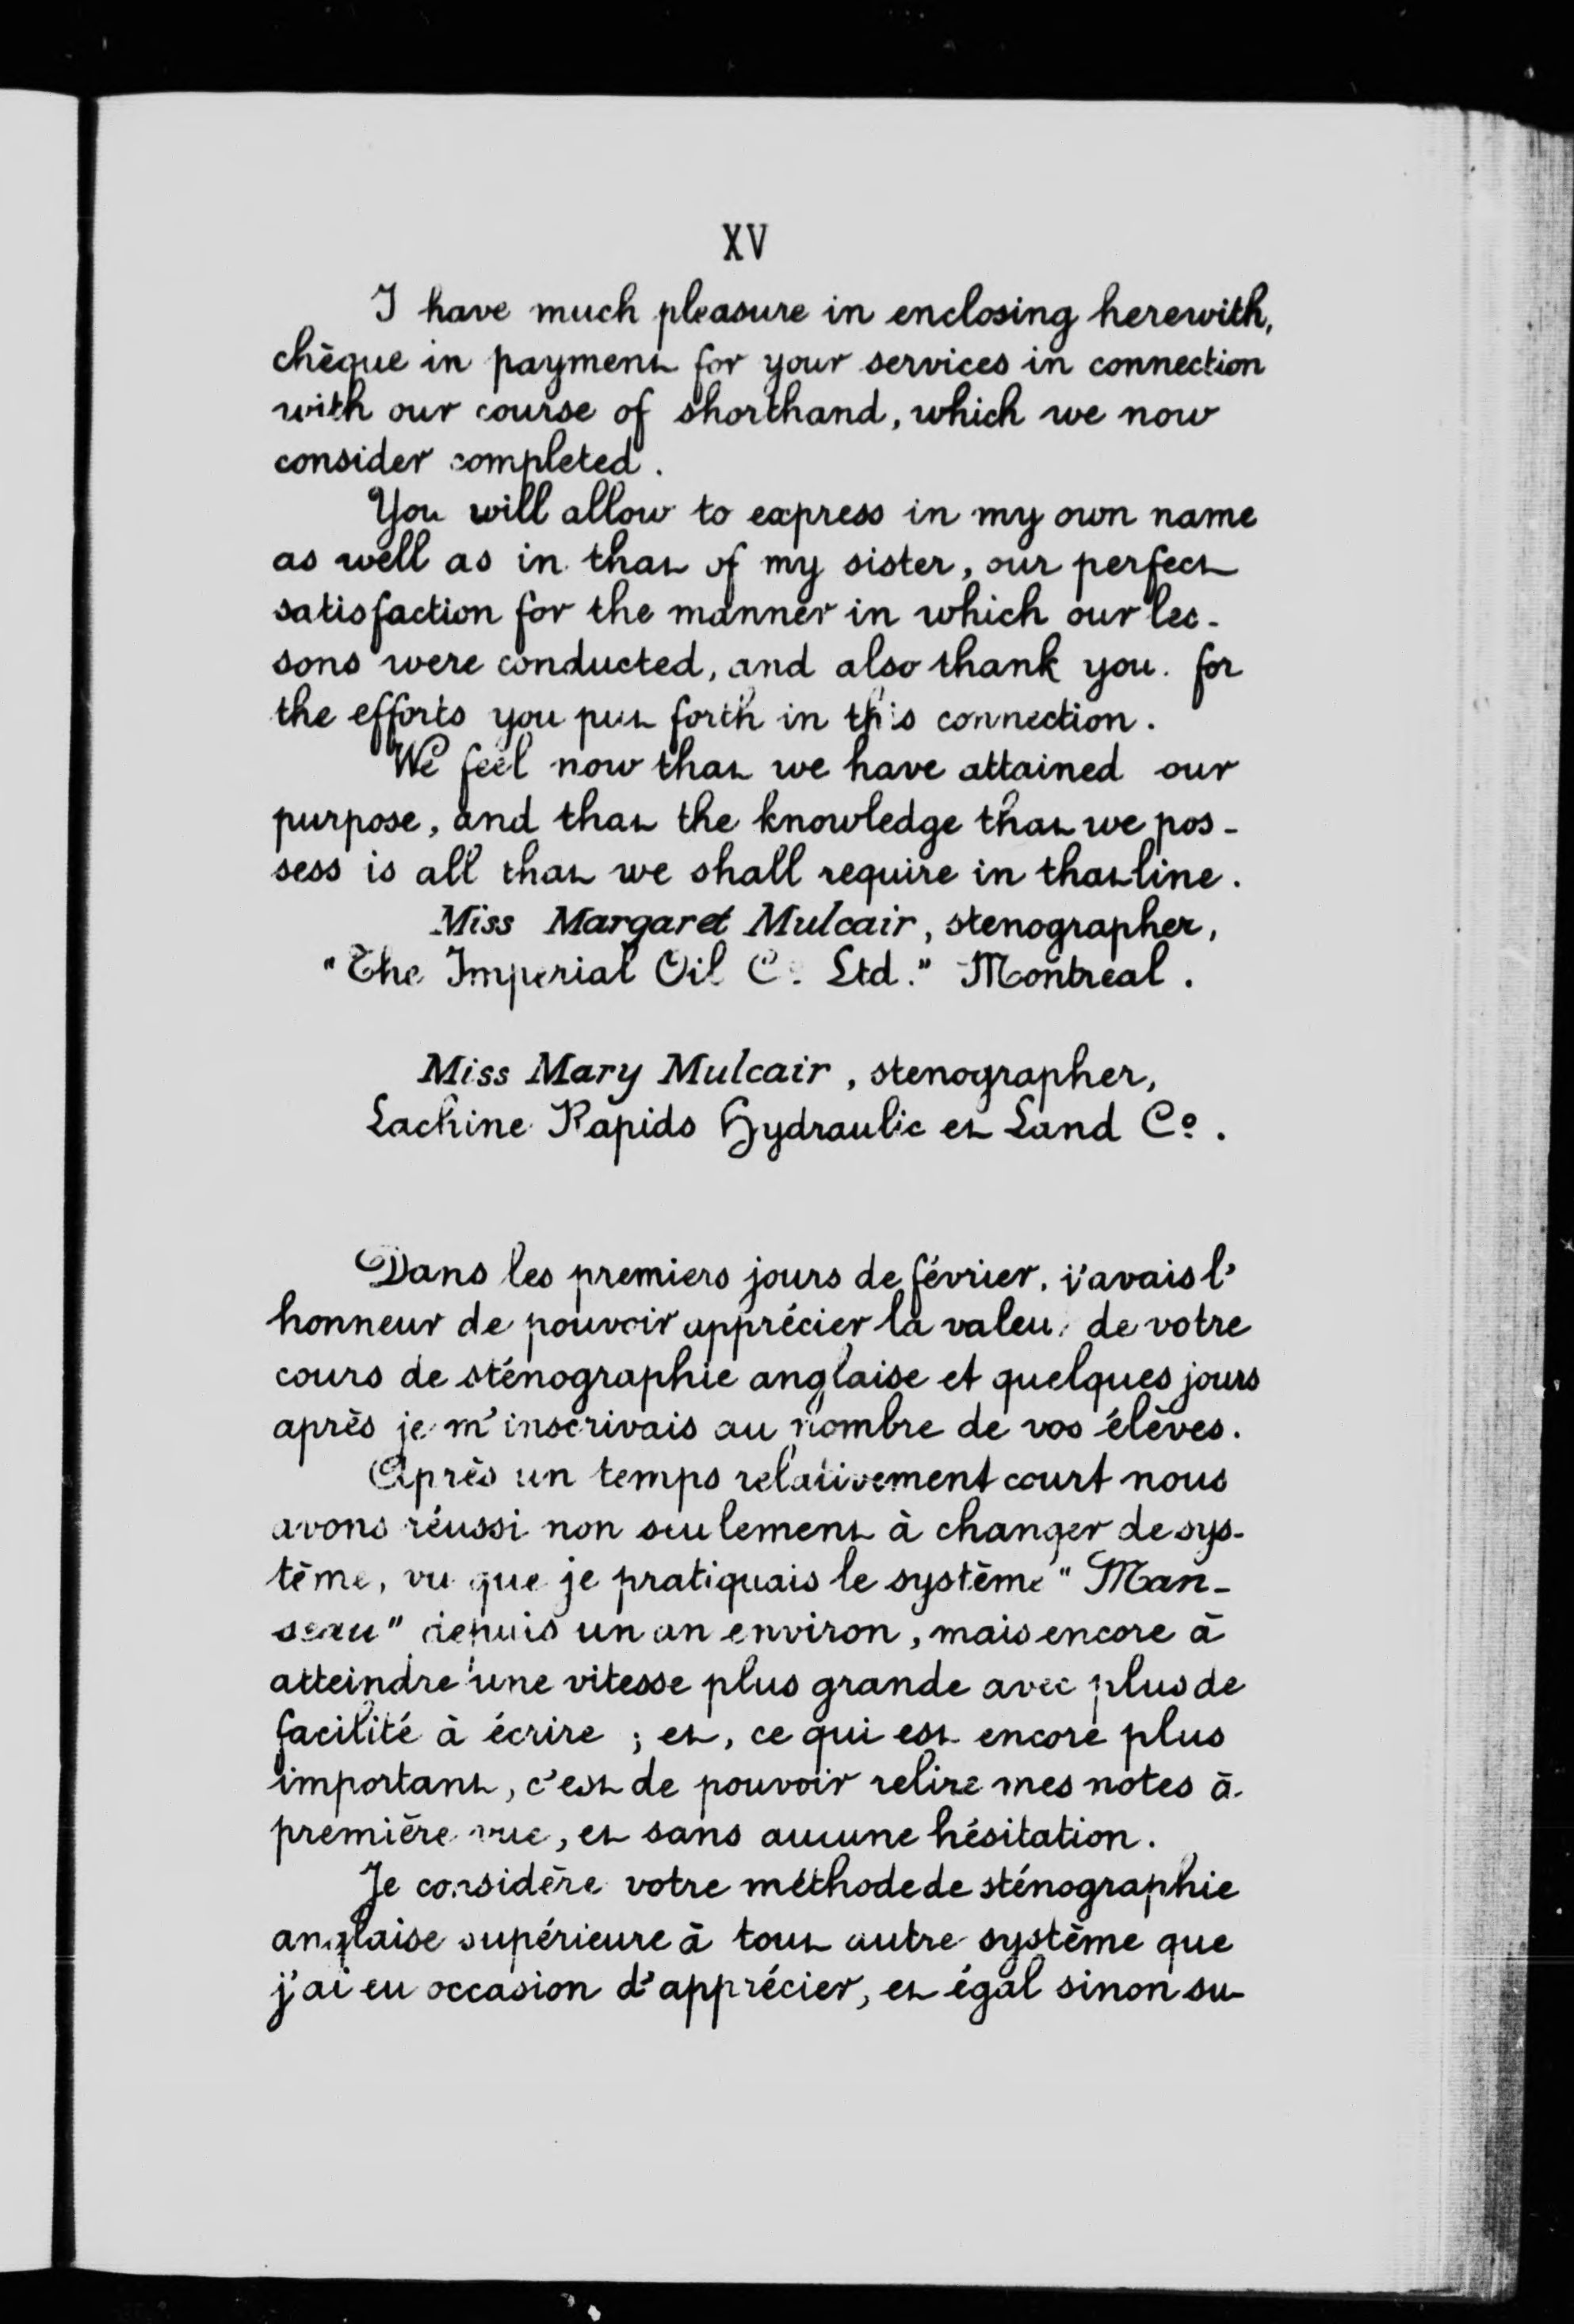 XV
I have much pleasure in enclosing herewith,
chèque in payment for your services in connection
with our course of shorthand, which we now
consider completed.
You will allow to express in my own name
as well as in that of my sister, our perfect
satisfaction for the manner in which our les-
sons were conducted, and also thank you for
the efforts you put forth in this connection.
We feel now that we have attained our
purpose, and that the knowledge that we pos-
sess is all that we shall require in that line.
Miss Margaret Mulcair, stenographer,
"The Imperial Oil Cº Ltd." Montreal.
Miss Mary Mulcair, stenographer,
Lachine Rapids Hydraulic et Land Cº.
Dans les premiers jours de février, j'avais l'
honneur de pouvoir apprécier la valeur de votre
cours de sténographie anglaise et quelques jours
après je m'inscrivais au nombre de vos élèves.
Après un temps relativement court nous
avons réussi non seulement à changer de sys-
tème, vu que je pratiquais le système "Man-
seau" depuis un an environ, mais encore à
atteindre une vitesse plus grande avec plus de
facilité à écrire ; et, ce qui est encore plus
important, c'est de pouvoir relire mes notes à
première vue, et sans aucune hésitation.
Je considère votre méthode de sténographie
anglaise supérieure à tout autre système que
j'ai eu occasion d'apprécier, et égal sinon su-